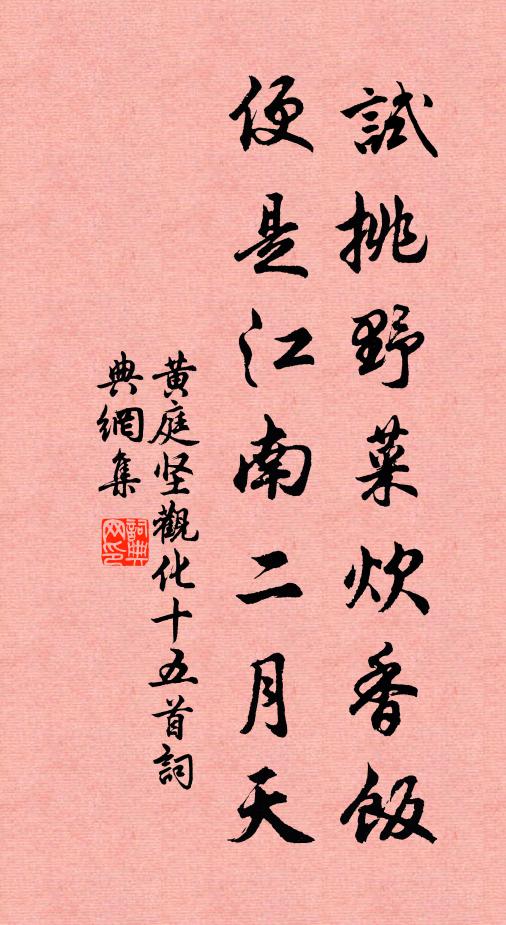 試挑野菜炊香飯
便是江南二月天
黄庭坚觀化十五首詞
典網集
詞典
网印